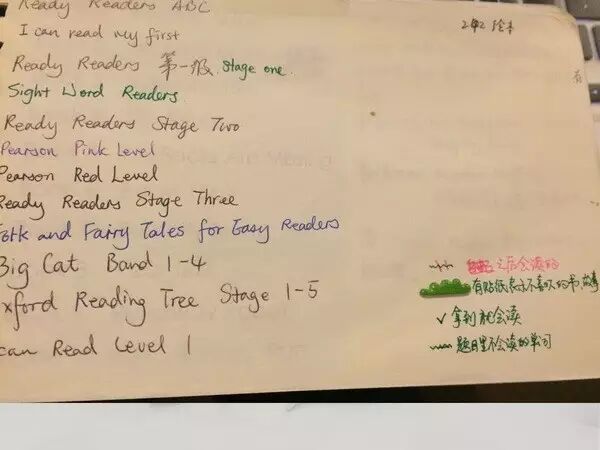 Ready Readers ABC
I can read my first
Ready Readers 第一级 Stage one.
Sight Word Readers
Ready Readers Stage Two
Pearson Pink Level
Pearson Red Level
Ready Readers Stage Three
Folk and Fairy Tales for Easy Readers
Big Cat Band 1-4
xford Reading Tree Stage 1-5
can Read Level 1
绘本
有
之后会读的
有贴纸表示不喜欢的书/故事
✓ 拿到就会读
题目里不会读的单词